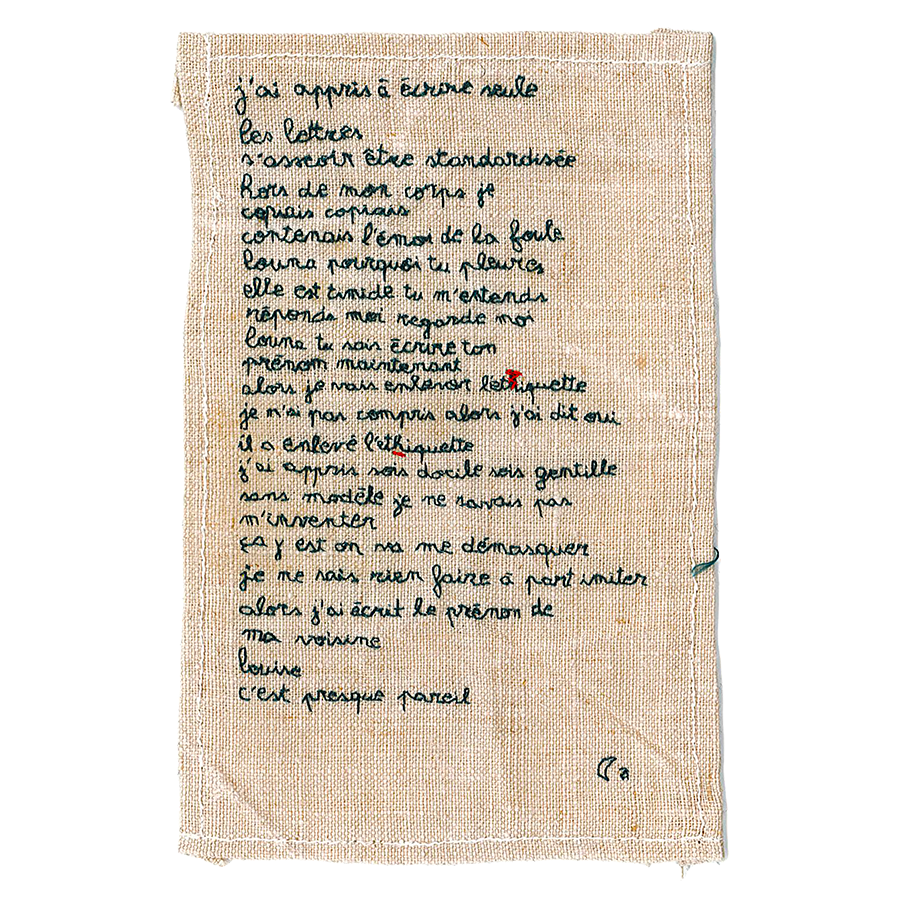 j'ai appris à écrire seule
les lettres
s'asseoir être standardisée
hors de mon corps je
copiais copiais
contenais l'émoi de la foule
louna pourquoi tu pleures
elle est timide tu m'entends
réponds moi regarde moi
louna tu sais écrire ton
prénom maintenant
alors je vais enlever l'éthiquette
je n'ai pas compris alors j'ai dit oui
il a enlevé l'éthiquette
j'ai appris sois docile sois gentille
sans modèle je ne savais pas
m'inventer
ça y est on va me démasquer
je ne sais rien faire à part imiter
alors j'ai écrit le prénom de
ma voisine
louise
c'est presque pareil